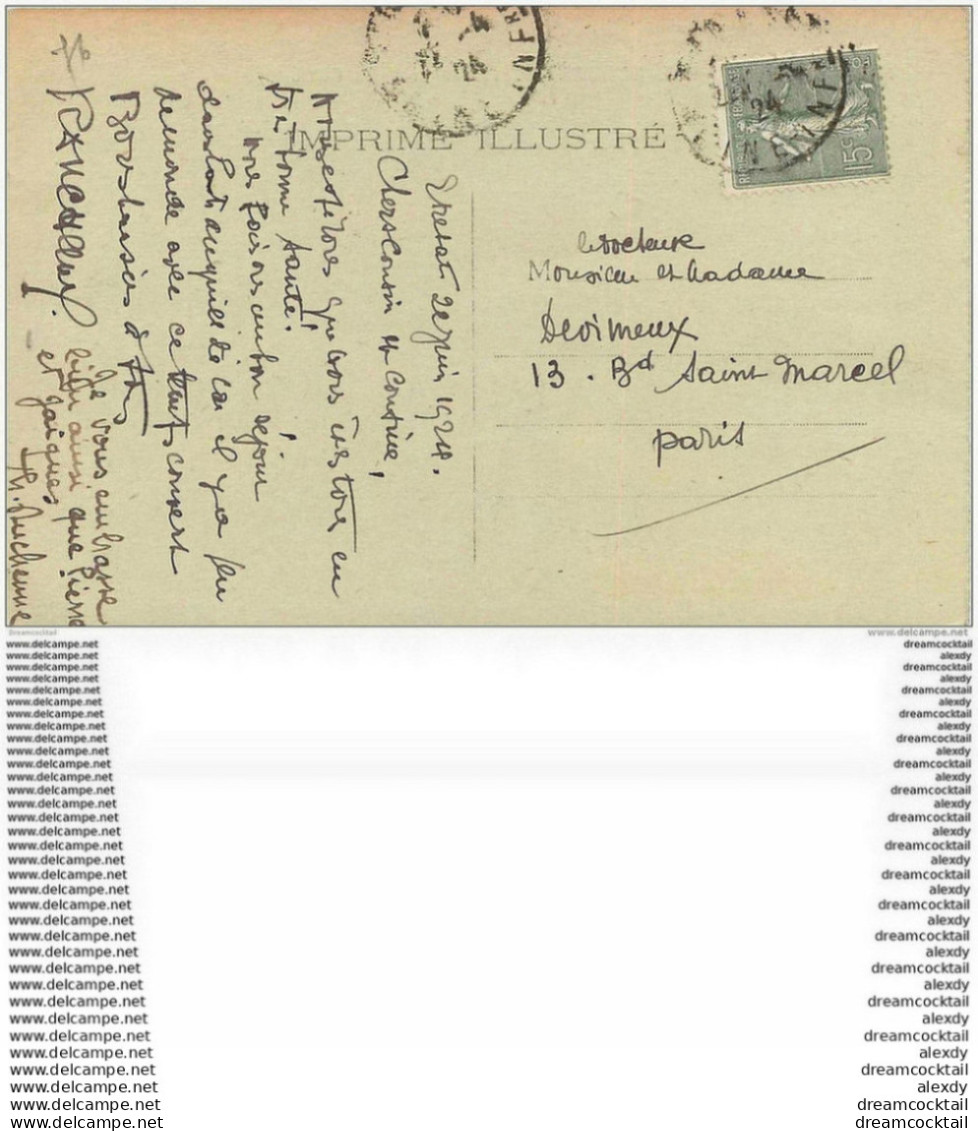 IMPRIMÉ ILLUSTRÉ
15c
Etretat 2 juin 1924.
Chers Cousin et Cousine,
Nous espérons que vous êtes tous en
très bonne santé.
Nous faisons un bon séjour
il y a peu
de monde avec ce temps couvert
Bons baisers à tous
Je vous embrasse
bien ainsi que Pierre
et Jacques
Duchenne
le docteur
Monsieur et Madame
Devimeux
13. Bd Saint Marcel
Paris
Dreamcocktail
www.delcampe.net
www.delcampe.net
dreamcocktail
www.delcampe.net
alexdy
www.delcampe.net
dreamcocktail
www.delcampe.net
alexdy
www.delcampe.net
dreamcocktail
www.delcampe.net
alexdy
www.delcampe.net
dreamcocktail
www.delcampe.net
alexdy
www.delcampe.net
dreamcocktail
www.delcampe.net
alexdy
www.delcampe.net
dreamcocktail
www.delcampe.net
alexdy
www.delcampe.net
dreamcocktail
www.delcampe.net
alexdy
www.delcampe.net
dreamcocktail
www.delcampe.net
alexdy
www.delcampe.net
dreamcocktail
www.delcampe.net
alexdy
www.delcampe.net
dreamcocktail
www.delcampe.net
alexdy
www.delcampe.net
dreamcocktail
www.delcampe.net
alexdy
www.delcampe.net
dreamcocktail
www.delcampe.net
alexdy
www.delcampe.net
dreamcocktail
www.delcampe.net
alexdy
www.delcampe.net
dreamcocktail
www.delcampe.net
alexdy
www.delcampe.net
dreamcocktail
www.delcampe.net
alexdy
www.delcampe.net
dreamcocktail
www.delcampe.net
alexdy
www.delcampe.net
dreamcocktail
www.delcampe.net
alexdy
www.delcampe.net
dreamcocktail
www.delcampe.net
dreamcocktail